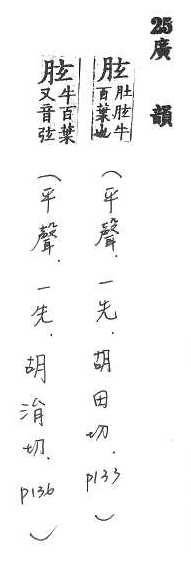 25廣韻
胘肚胘牛百葉也(平聲.一先.胡田切.p133)
胘牛百葉又音弦(平聲.一先.胡涓切.p136)